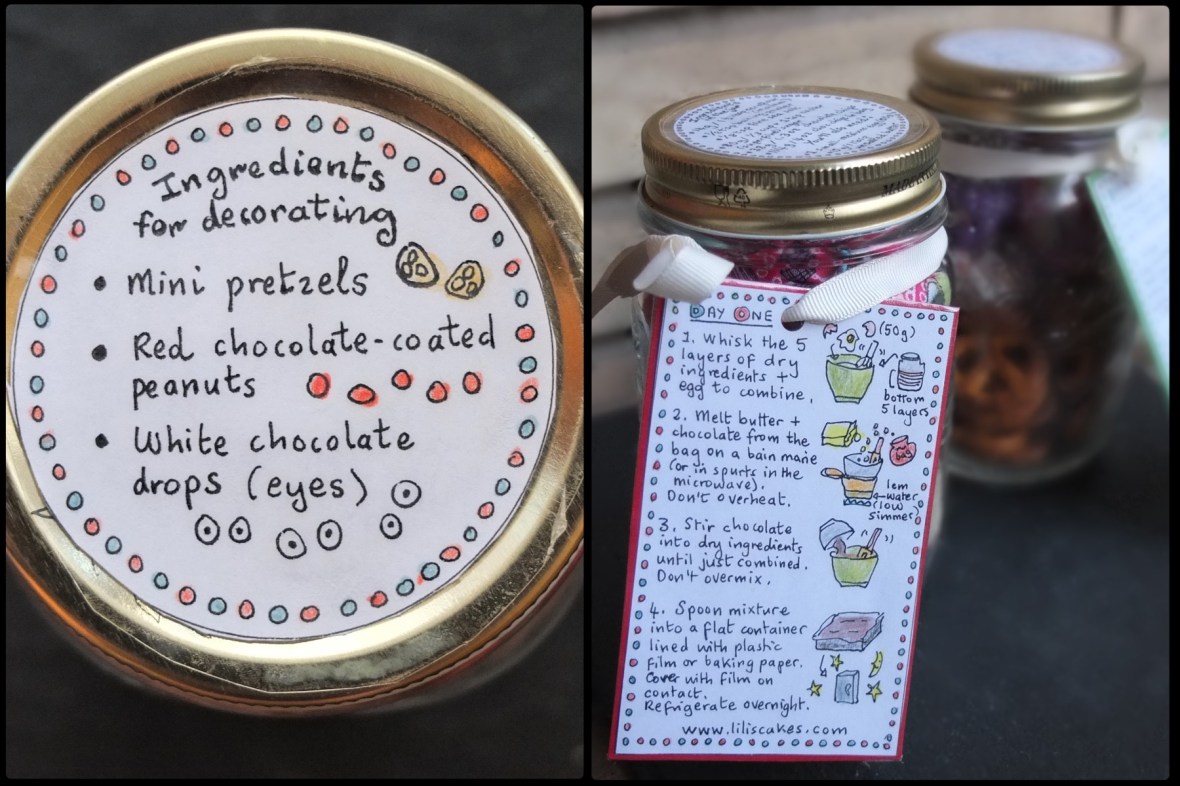 Ingredients
for decorating
• Mini pretzels
• Red chocolate-coated
peanuts
• White chocolate
drops (eyes)
DAY ONE
1. Whisk the 5
layers of dry
ingredients +
egg to combine.
(50g)
bottom
5 layers
2. Melt butter +
chocolate from the
bag on a bain marie
(or in spurts in the
microwave).
Don't overheat.
1cm
water
(low
simmer)
3. Stir chocolate
into dry ingredients
until just combined.
Don't overmix.
4. Spoon mixture
into a flat container
lined with plastic
film or baking paper.
Cover with film on
contact.
Refrigerate overnight.
www.liliscakes.com